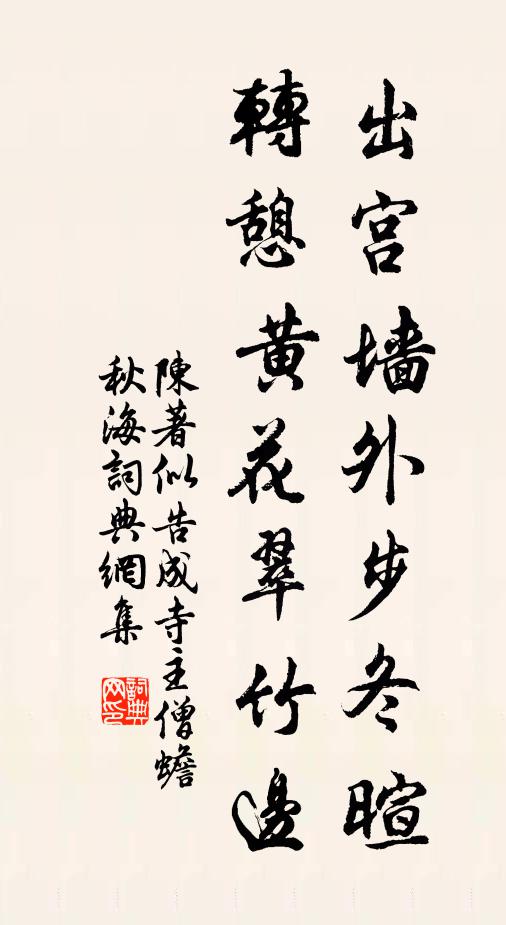 出宫墙外步冬暄
轉憩黄花翠竹邊
陳著似告成寺主僧蟾
秋海詞典網集
詞典
网印